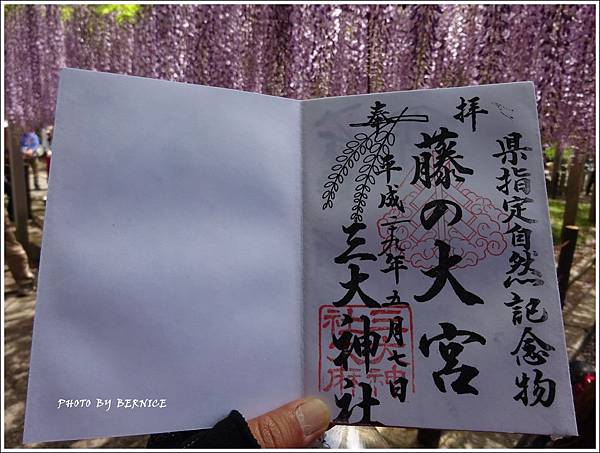 県指定自然記念物
奉拝
藤の大宮
平成二十九年五月七日
三大神社
PHOTO BY BERNICE